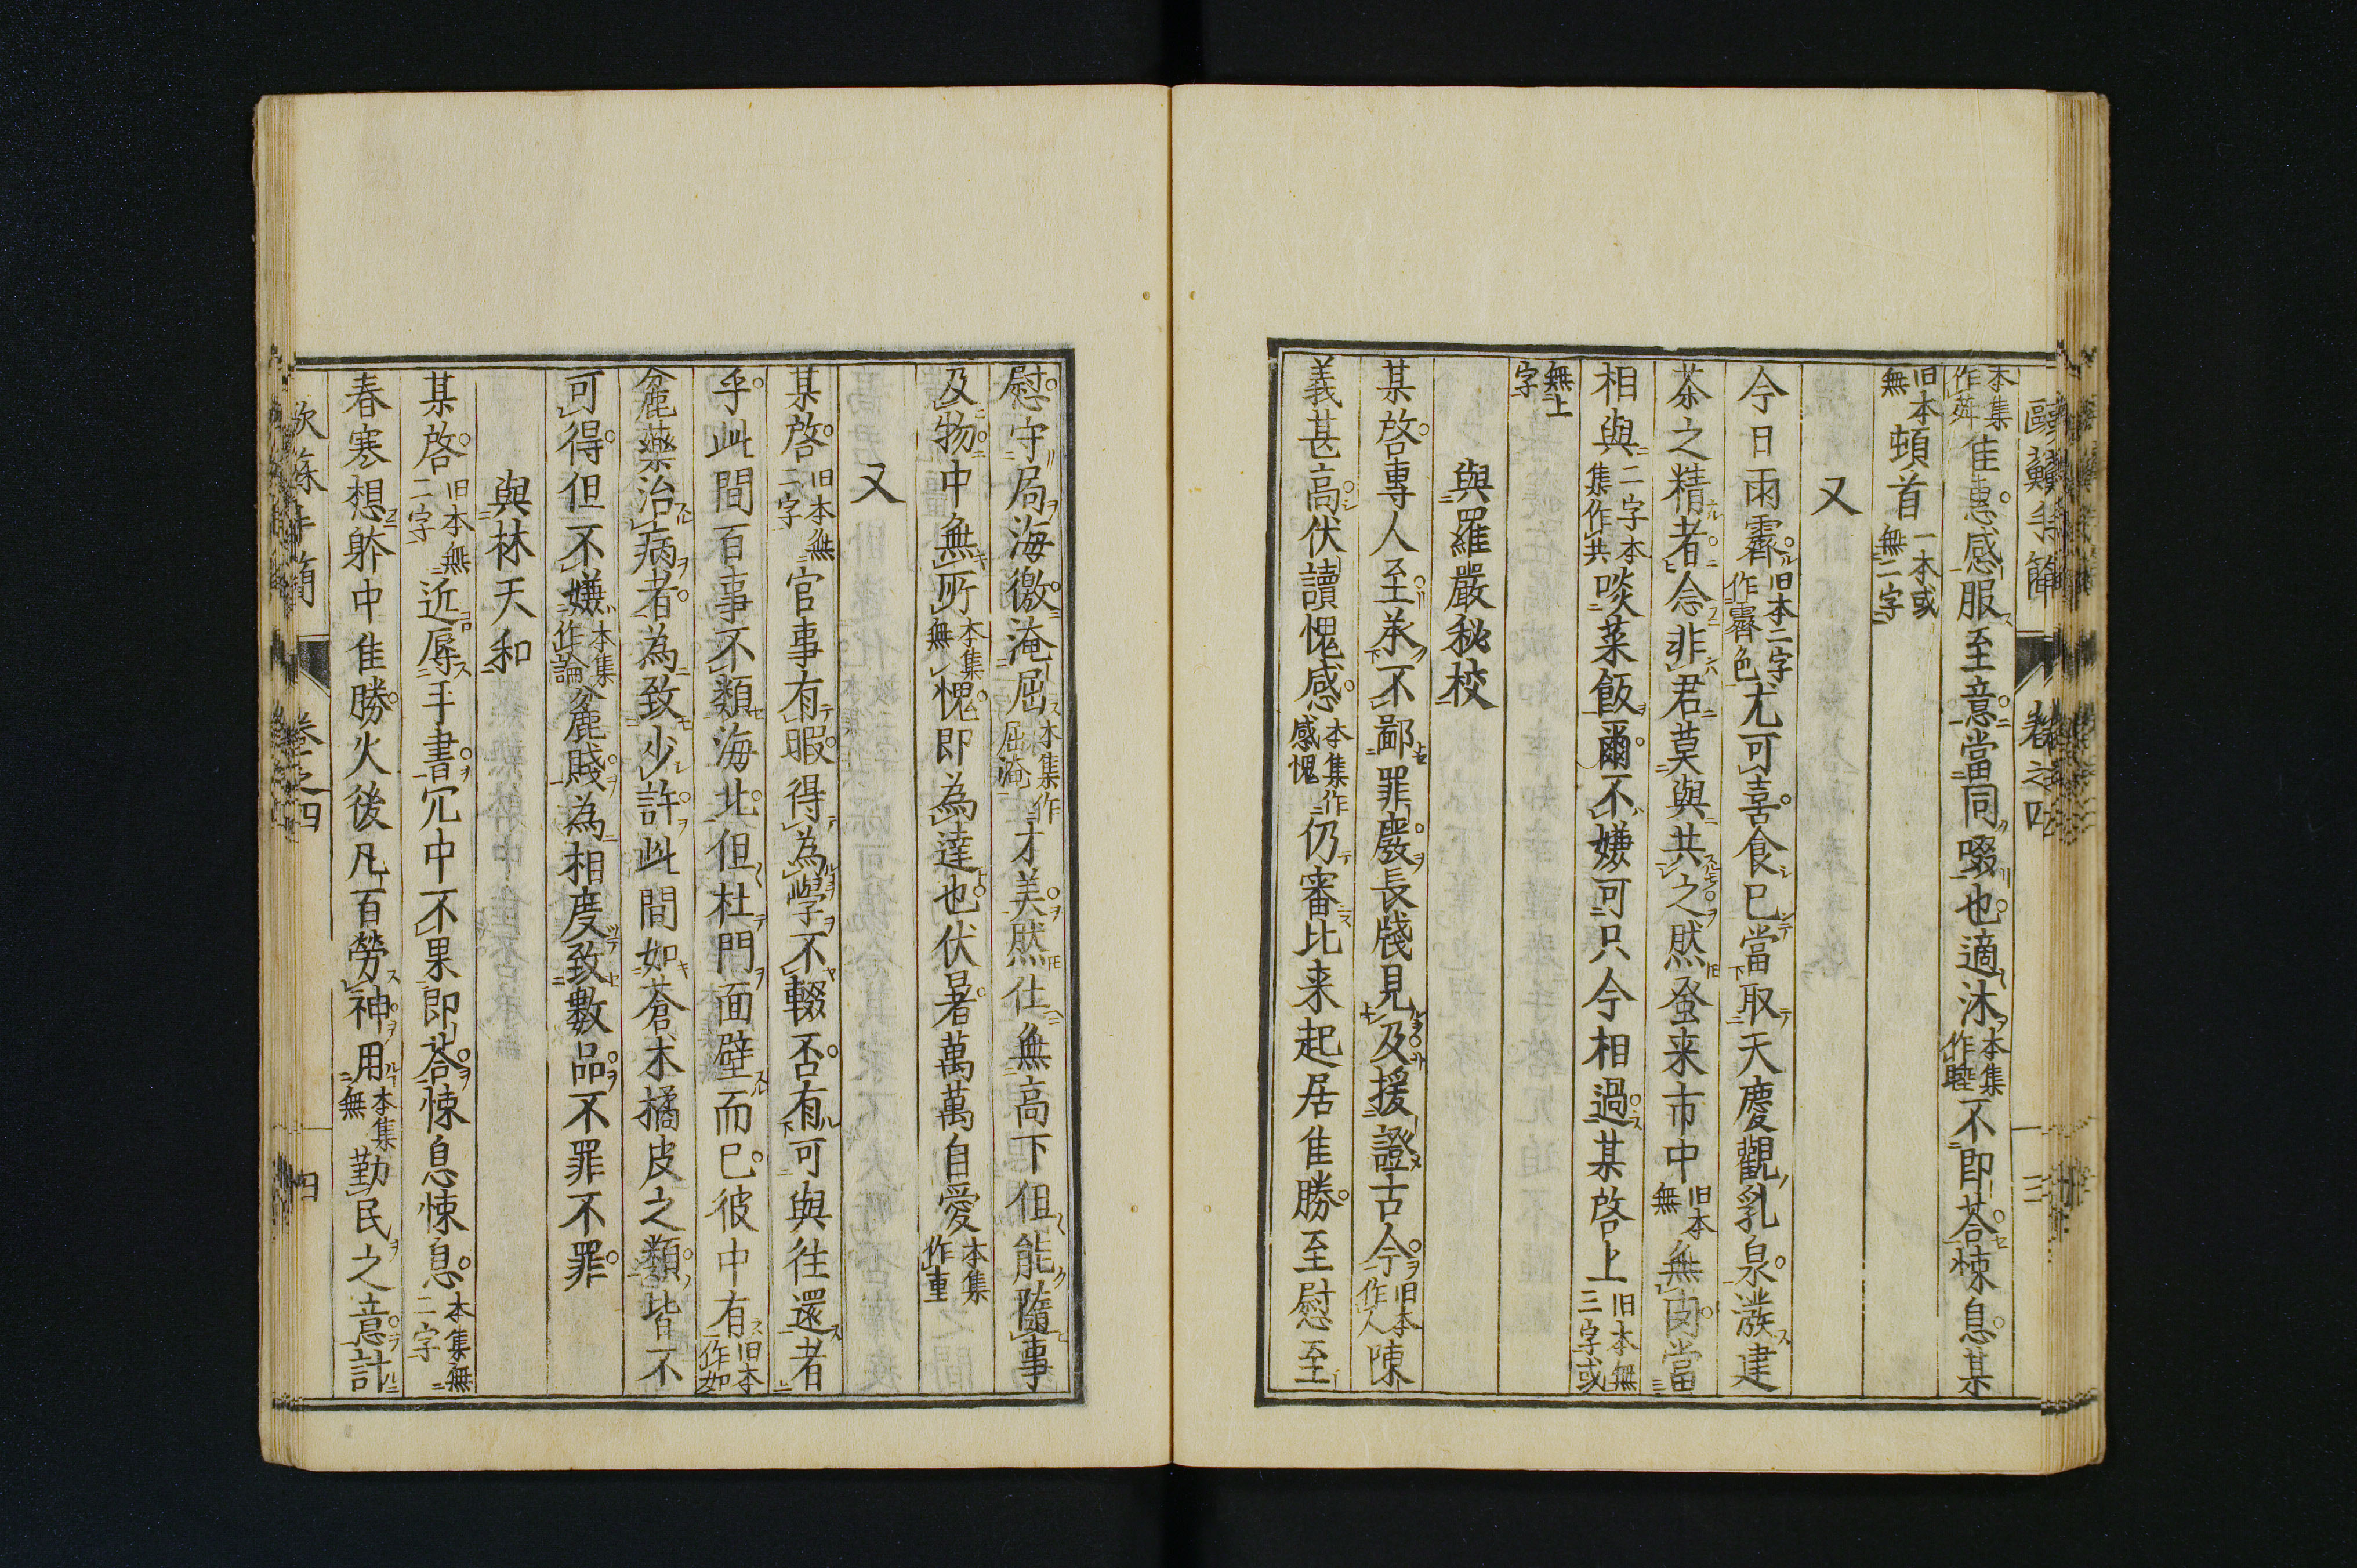 歐蘓手簡 卷之四 三
本集作茈佳惠感服至意當同啜也適沐本集作睦不即荅悚息某
旧本無頓首一本或無二字
又
今日雨霽旧本二字作霽色尤可喜食已當取天慶觀乳泉潑建
茶之精者念非君莫與共之然蚤来市中旧本無無肉當
相與二字本集作共啖菜飯爾不嫌可只今相過某啓上旧本無三字或
無上字
與羅嚴秘校
某啓專人至承不鄙罪廢長牋見及援證古今旧本作人陳
義甚高伏讀愧感本集作感愧仍審比来起居佳勝至慰至
慰守局海徼淹屈本集作屈淹才美然仕無高下但能隨事
及物中無所本集無愧即為達也伏暑萬萬自愛本集作重
又
某啓旧本無二字官事有暇得為學不輟否有可與往還者
乎此間百事不類海北但杜門面壁而已彼中有旧本作如
麄藥治病者為致少許此間如蒼朮橘皮之類皆不
可得但不嫌本集作論麄賤為相度致數品不罪不罪
與林天和
某啓旧本無二字近辱手書冗中不果即荅悚息悚息本集無二字
春寒想躰中佳勝火後凡百勞神用本集無勤民之意計
歐蘓手簡 卷之四 四